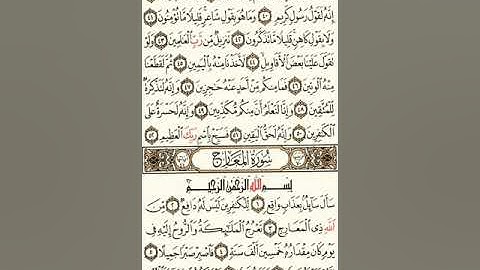 إِنَّهُۥ لَقَوۡلُ رَسُولٖ كَرِيمٖ ٤٠ وَمَا هُوَ بِقَوۡلِ شَاعِرٖۚ قَلِيلٗا مَّا تُؤۡمِنُونَ ٤١
وَلَا بِقَوۡلِ كَاهِنٖۚ قَلِيلٗا مَّا تَذَكَّرُونَ ٤٢ تَنزِيلٞ مِّن رَّبِّ ٱلۡعَٰلَمِينَ ٤٣ وَلَوۡ
تَقَوَّلَ عَلَيۡنَا بَعۡضَ ٱلۡأَقَاوِيلِ ٤٤ لَأَخَذۡنَا مِنۡهُ بِٱلۡيَمِينِ ٤٥ ثُمَّ لَقَطَعۡنَا
مِنۡهُ ٱلۡوَتِينَ ٤٦ فَمَا مِنكُم مِّنۡ أَحَدٍ عَنۡهُ حَٰجِزِينَ ٤٧ وَإِنَّهُۥ لَتَذۡكِرَةٞ
لِّلۡمُتَّقِينَ ٤٨ وَإِنَّا لَنَعۡلَمُ أَنَّ مِنكُم مُّكَذِّبِينَ ٤٩ وَإِنَّهُۥ لَحَسۡرَةٌ عَلَى
ٱلۡكَٰفِرِينَ ٥٠ وَإِنَّهُۥ لَحَقُّ ٱلۡيَقِينِ ٥١ فَسَبِّحۡ بِٱسۡمِ رَبِّكَ ٱلۡعَظِيمِ ٥٢
سُورَةُ المَعَارِج
بِسۡمِ ٱللَّهِ ٱلرَّحۡمَٰنِ ٱلرَّحِيمِ
سَأَلَ سَآئِلُۢ بِعَذَابٖ وَاقِعٖ ١ لِّلۡكَٰفِرِينَ لَيۡسَ لَهُۥ دَافِعٞ ٢ مِّنَ
ٱللَّهِ ذِي ٱلۡمَعَارِجِ ٣ تَعۡرُجُ ٱلۡمَلَٰٓئِكَةُ وَٱلرُّوحُ إِلَيۡهِ فِي
يَوۡمٖ كَانَ مِقۡدَارُهُۥ خَمۡسِينَ أَلۡفَ سَنَةٖ ٤ فَٱصۡبِرۡ صَبۡرٗا جَمِيلًا ٥